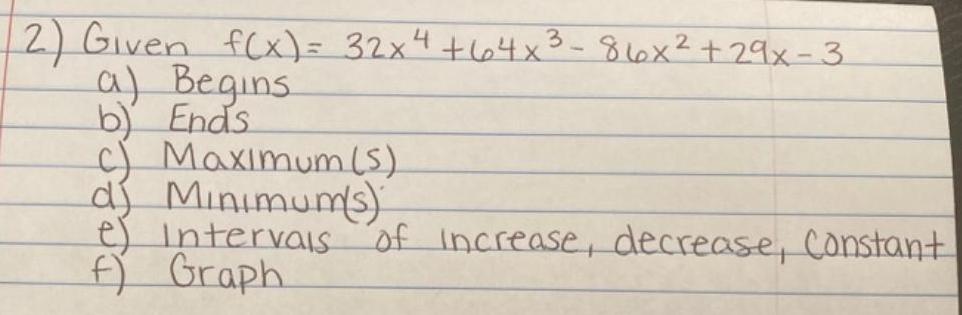 2) Given f(x) = 32x⁴ + 64x³ - 86x² + 29x - 3
a) Begins
b) Ends
c) Maximum(s)
d) Minimum(s)
e) Intervals of increase, decrease, constant
f) Graph